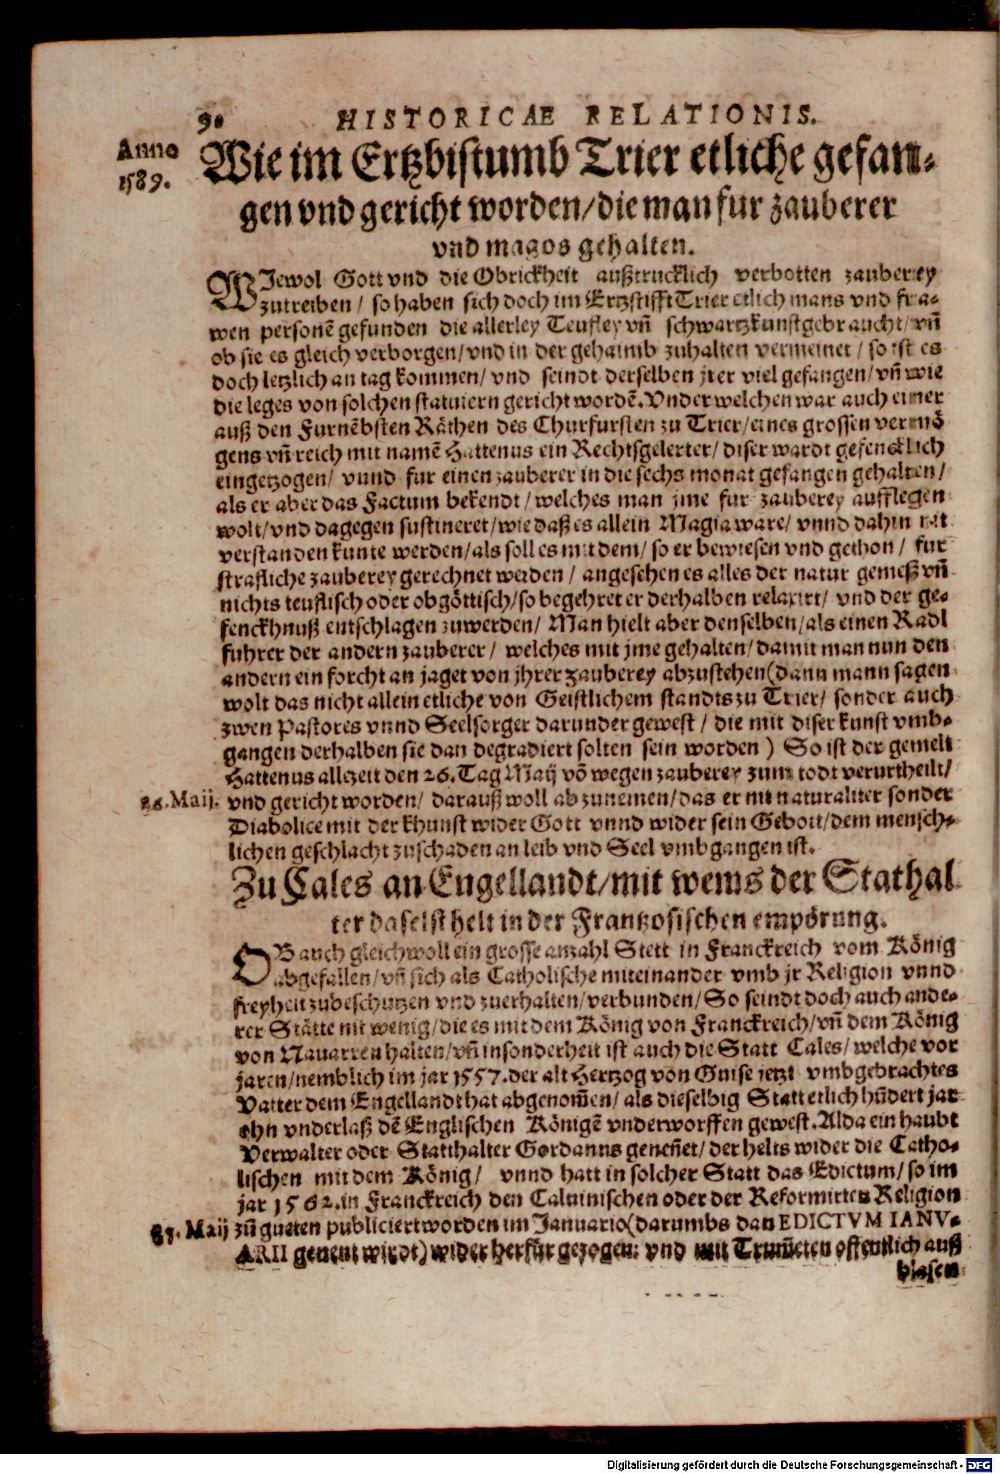 90 HISTORICAE RELATIONIS.
Anno
1589.
Wie im Ertzbistumb Trier etliche gefan-
gen vnd gericht worden/die man fur zauberer
vnd magos gehalten.
WJewol Gott vnd die Obrickheit außtrucklich verbotten zauberey
zutreiben/ so haben sich doch im Ertzstifft Trier etlich mans vnd fra-
wen personē gefunden die allerley Teufley vñ schwartzkunst gebraucht/ vñ
ob sie es gleich verborgen/ vnd in der gehaimb zuhalten vermeinet/ so ist es
doch letzlich an tag kommen/ vnd seindt derselben jrer viel gefangen/ vñ wie
die leges von solchen statuiern gericht wordē. Vnder welchen war auch einer
auß den Furnēbsten Räthen des Churfursten zu Trier/ eines grossen vermö
gens vñ reich mit namē Hattenus ein Rechtsgelerter/ diser wardt gefencklich
eingetzogen/ vnnd fur einen zauberer in die sechs monat gefangen gehalten/
als er aber das Factum bekendt/ welches man jme fur zauberey aufflegen
wolt/ vnd dagegen sustineret/ wie daß es allein Magia ware/ vnnd dahin nit
verstanden kunte werden/ als soll es mit dem/ so er bewiesen vnd gethon/ fur
strafliche zauberey gerechnet werden/ angesehen es alles der natur gemeß vñ
nichts teuflisch oder obgöttisch/ so begehret er derhalben relaxirt/ vnd der ge-
fenckhnuß entschlagen zuwerden/ Man hielt aber denselben/ als einen Radl
fuhrer der andern zauberer/ welches mit jme gehalten/ damit man nun den
andern ein forcht an jaget von jhrer zauberey abzustehen (dann mann sagen
wolt das nicht allein etliche von Geistlichem standts zu Trier/ sonder auch
zwen Pastores vnnd Seelsorger darunder gewest/ die mit diser kunst vmb-
gangen derhalben sie dan degradiert solten sein worden) So ist der gemelt
Hattenus allezeit den 26. Tag Maij võ wegen zauberey zum todt verurtheilt/
26. Maij. vnd gericht worden/ darauß woll abzunemen/ das er nit naturaliter sonder
Diabolice mit der khunst wider Gott vnnd wider sein Gebott/ dem mensch-
lichen geschlacht zuschaden an leib vnd Seel vmbgangen ist.
Zu Cales an Engellandt/mit wems der Stathal
ter daselst helt in der Frantzosischen empörung.
OB auch gleichwoll ein grosse anzahl Stett in Franckreich vom König
abgefallen/ vñ sich als Catholische miteinander vmb jr Religion vnnd
freyheit zubeschutzen vnd zuerhalten/ verbunden/ So seindt doch auch ande-
rer Stätte nit wenig/ die es mit dem König von Franckreich/ vñ dem König
von Nauarren halten/ vñ insonderheit ist auch die Statt Cales/ welche vor
jaren/ nemblich im jar 1557. der alt Hertzog von Guise jetzt vmbgebrachtes
Vatter dem Engellandt hat abgenom̃en/ als dieselbig Statt etlich hũdert jar
ohn vnderlaß dē Englischen Königē vnderworffen gewest. Alda ein haubt
Verwalter oder Statthalter Gordanns geneñet/ der helts wider die Catho-
lischen mit dem König/ vnnd hatt in solcher Statt das Edictum/ so im
jar 1562. in Franckreich den Caluinischen oder der Reformirten Religion
Maij zũ gueten publiciert worden im Januario (darumbs dan EDICTVM IANV-
ARII genent wirdt) wider herfür gezogen: vnd mit Trum̃eten offentlich auß
blasen
Digitalisierung gefördert durch die Deutsche Forschungsgemeinschaft - DFG